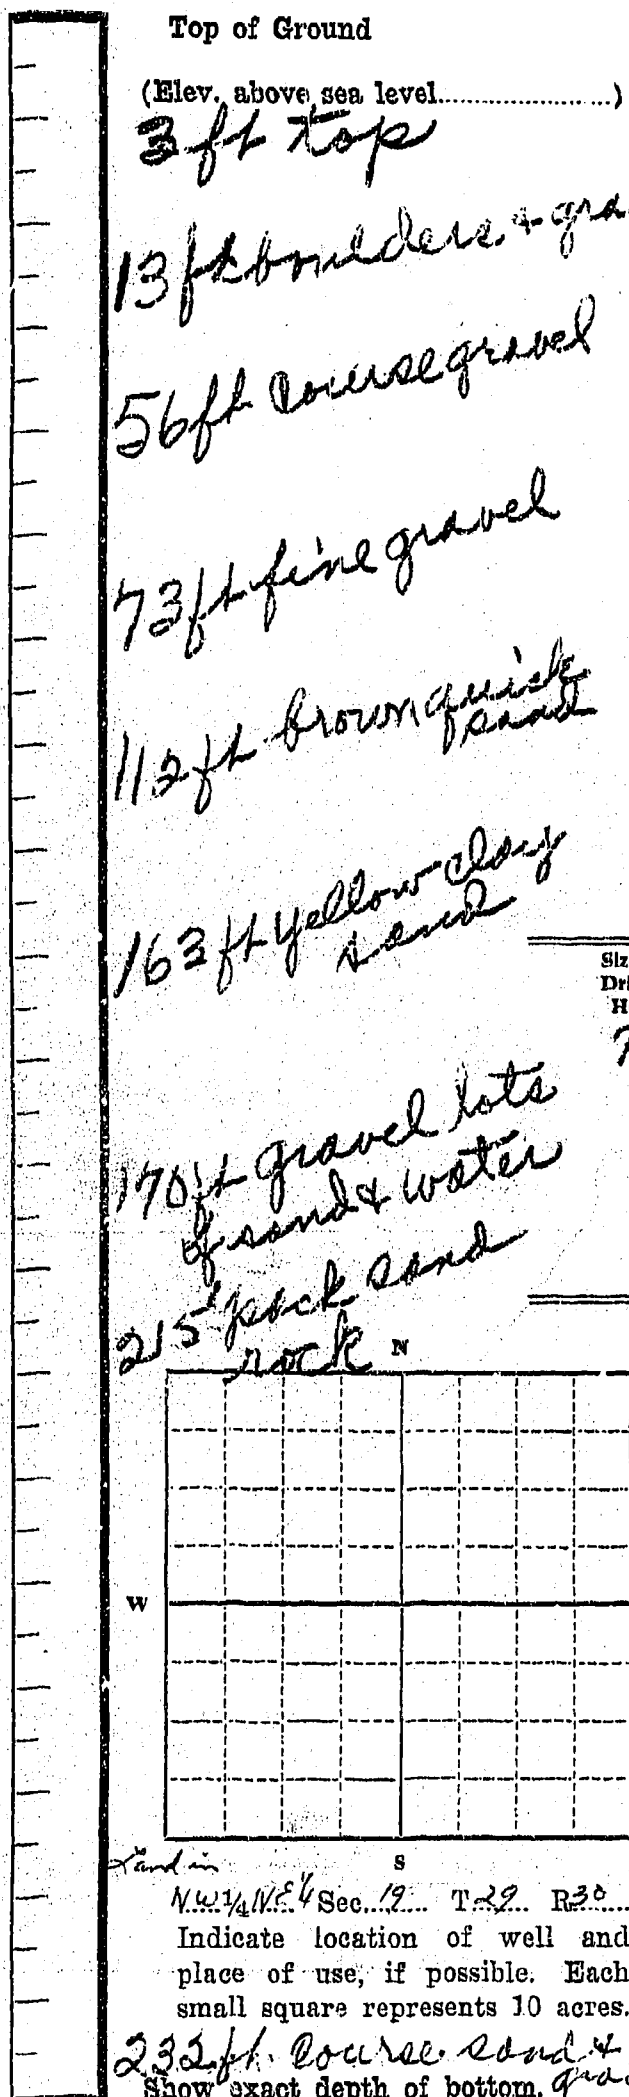 Top of Ground
(Elev. above sea level....................)
3 ft top
13 ft boulders & gra
56 ft Course gravel
73 ft fine gravel
112 ft brown quick
sand
163 ft yellow clay
sand
Siz
Dri
H
170 ft gravel lots
of sand & water
215' pack sand
rock
N
W
S
Land in
N.W. 1/4 N.E. 1/4 Sec. 19 T. 29 R. 30
Indicate location of well and
place of use, if possible. Each
small square represents 10 acres.
232 ft. Course sand &
Show exact depth of bottom. gra